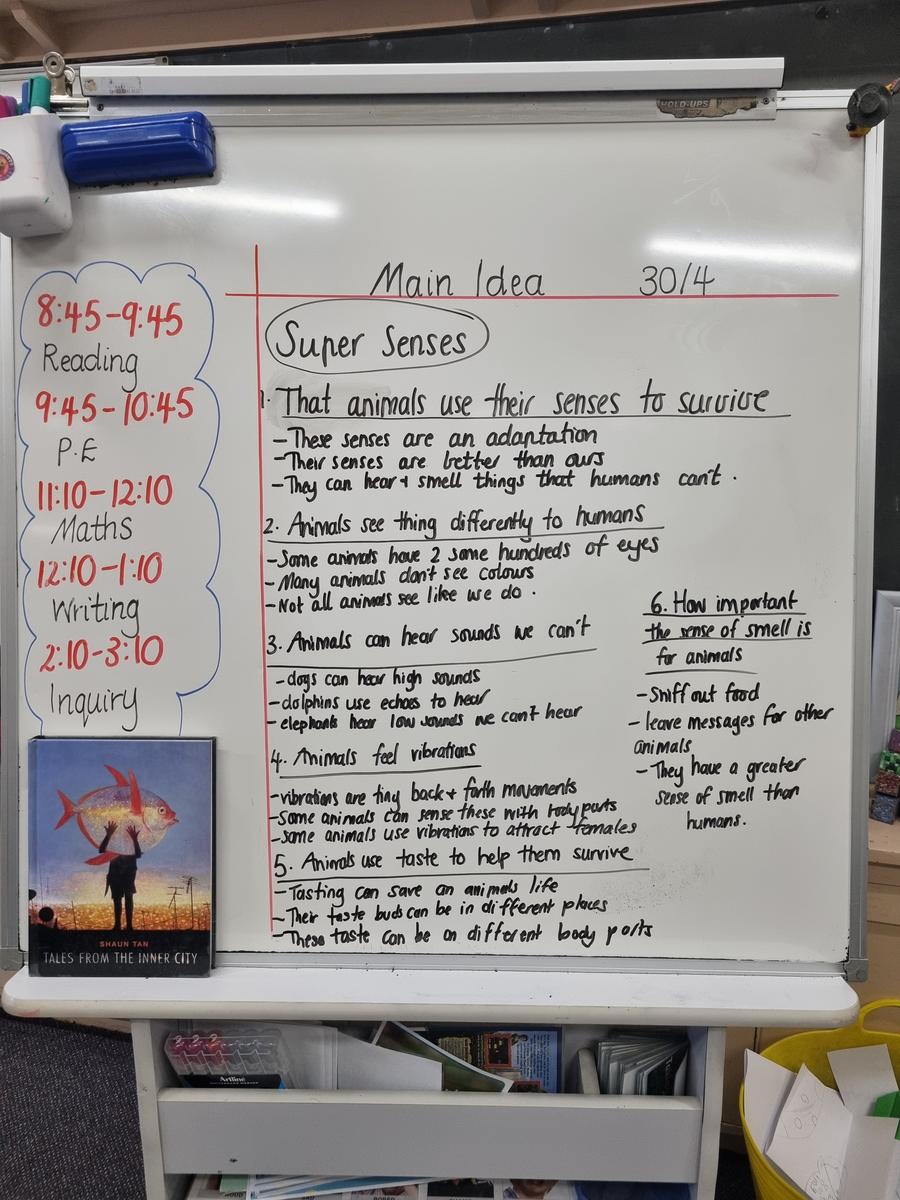 HOLD-UPS
Main Idea 30/4
8:45-9:45
Reading
9:45-10:45
P.E
11:10-12:10
Maths
12:10-1:10
Writing
2:10-3:10
Inquiry
Super Senses
1. That animals use their senses to survive
-These senses are an adaptation
-Their senses are better than ours
-They can hear + smell things that humans can't.
2. Animals see thing differently to humans
-Some animals have 2 some hundreds of eyes
-Many animals don't see colours
-Not all animals see like we do.
3. Animals can hear sounds we can't
-dogs can hear high sounds
-dolphins use echoes to hear
-elephants hear low sounds we can't hear
4. Animals feel vibrations
-vibrations are tiny back + forth movements
-Some animals can sense these with body parts
-some animals use vibrations to attract females
5. Animals use taste to help them survive
-Tasting can save an animals life
-Their taste buds can be in different places
-These taste can be on different body parts
6. How important
the sense of smell is
for animals
-Sniff out food
-leave messages for other
animals
-They have a greater
sense of smell than
humans.
SHAUN TAN
TALES FROM THE INNER CITY
Artline